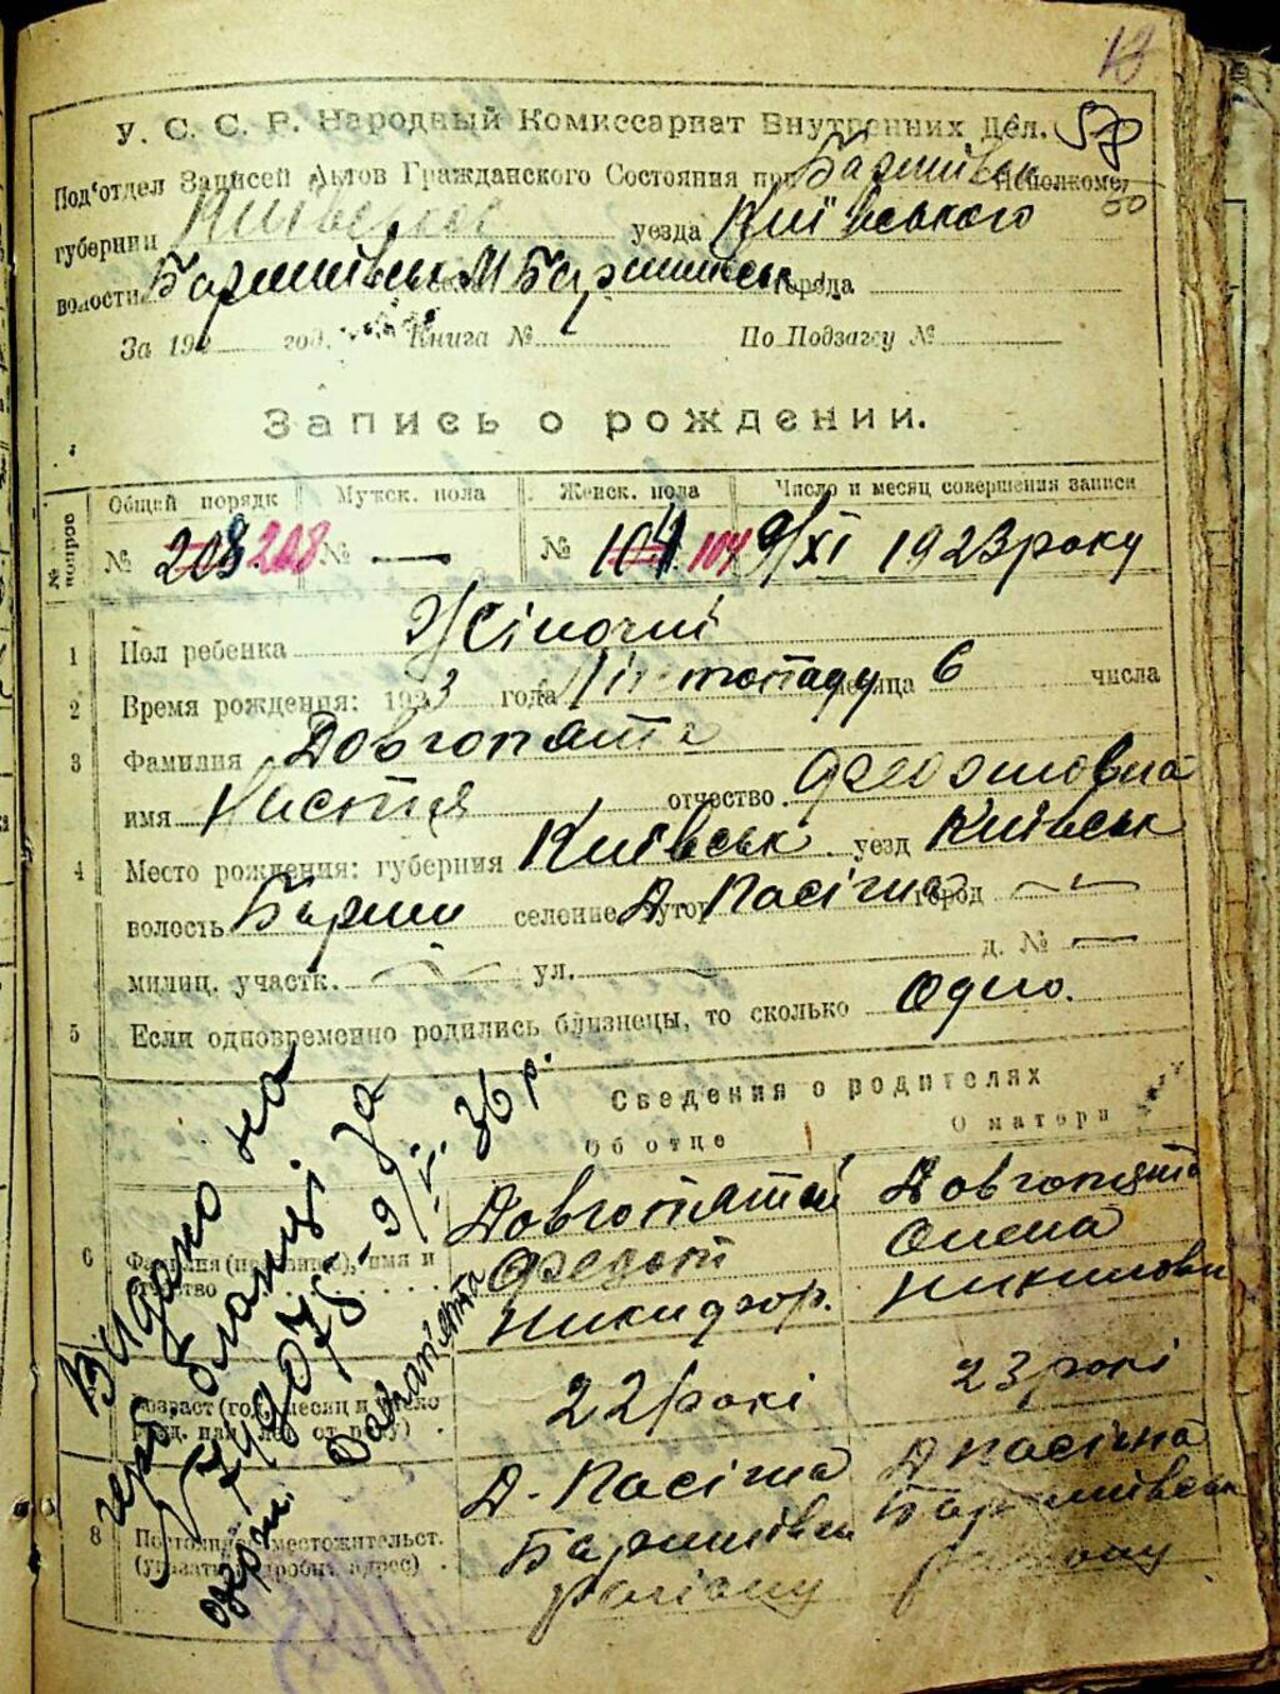 18
У. С. С. Р. Народный Комиссариат Внутренних Дел. 57
Под'отдел Записей Актов Гражданского Состояния при Баришівськ Исполкоме, 50
губернии Київської уезда Київського
волости Баришівськ М Баришівськ города
За 192 год. Книга № По Подзагсу №
Запись о рождении.
№ вопрос Общий порядк Мужск. пола Женск. пола Число и месяц совершения записи
№ 208 208 № — № 104 104 9/XI 1923 року
1 Пол ребенка Жіночий
2 Время рождения: 1923 года Листопаду месяца 6 числа
3 Фамилия Довгопята
имя Настя отчество Федотовна
4 Место рождения: губерния Київськ уезд Київськ
волость Бариш селение хутор Д. Пасічна город —
милиц. участк. — ул. д. № —
5 Если одновременно родились близнецы, то сколько Одно.
Сведения о родителях
Об отце О матери
6 Фамилия (прозвище), имя и отчество
Довгопятий Довгопята
Федот Олена
Никифор.
Возраст (год, месяц и число рожд. или лет от роду)
22 рокі 23 рокі
8 Постоянное местожительст. (указать подробн. адрес)
Д. Пасічна Д Пасічна
Баришівськ Баришівськ
району району
Видано на
герб. бланці за
№ 749075 - 9/V. 36 р.
одерж. Довгоп'ята